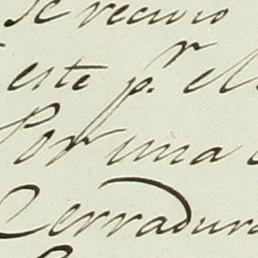 Se recivio
este p.r el
Por una
Cerradura